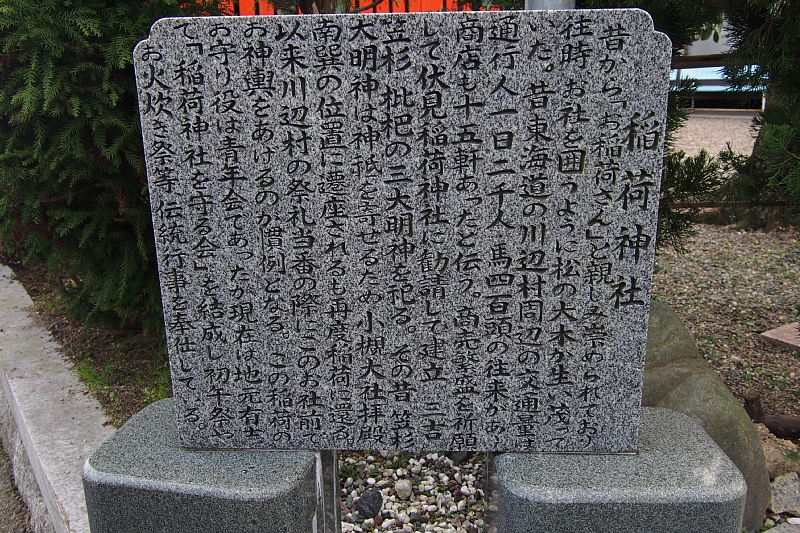 稲荷神社
昔から「お稲荷さん」と親しみ崇められており
往時お社を囲うように松の大木が生い茂って
いた。昔東海道の川辺村周辺の交通量は
通行人一日二千人 馬四百頭の往来があり
商店も十五軒あったと伝う。商売繁盛を祈願
して伏見稲荷神社に勧請して建立 三吉
笠杉 枇杷の三大明神を祀る。その昔 笠杉
大明神は神祇を寄せるため 小槻大社拝殿
南巽の位置に遷座されるも再度稲荷に還る。
以来川辺村の祭礼当番の際にこのお社前で
お神輿をあげるのが慣例となる。この稲荷の
お守り役は青年会であったが現在は地元有志
で「稲荷神社を守る会」を結成し初午祭や
お火炊き祭等 伝統行事を奉仕してる。